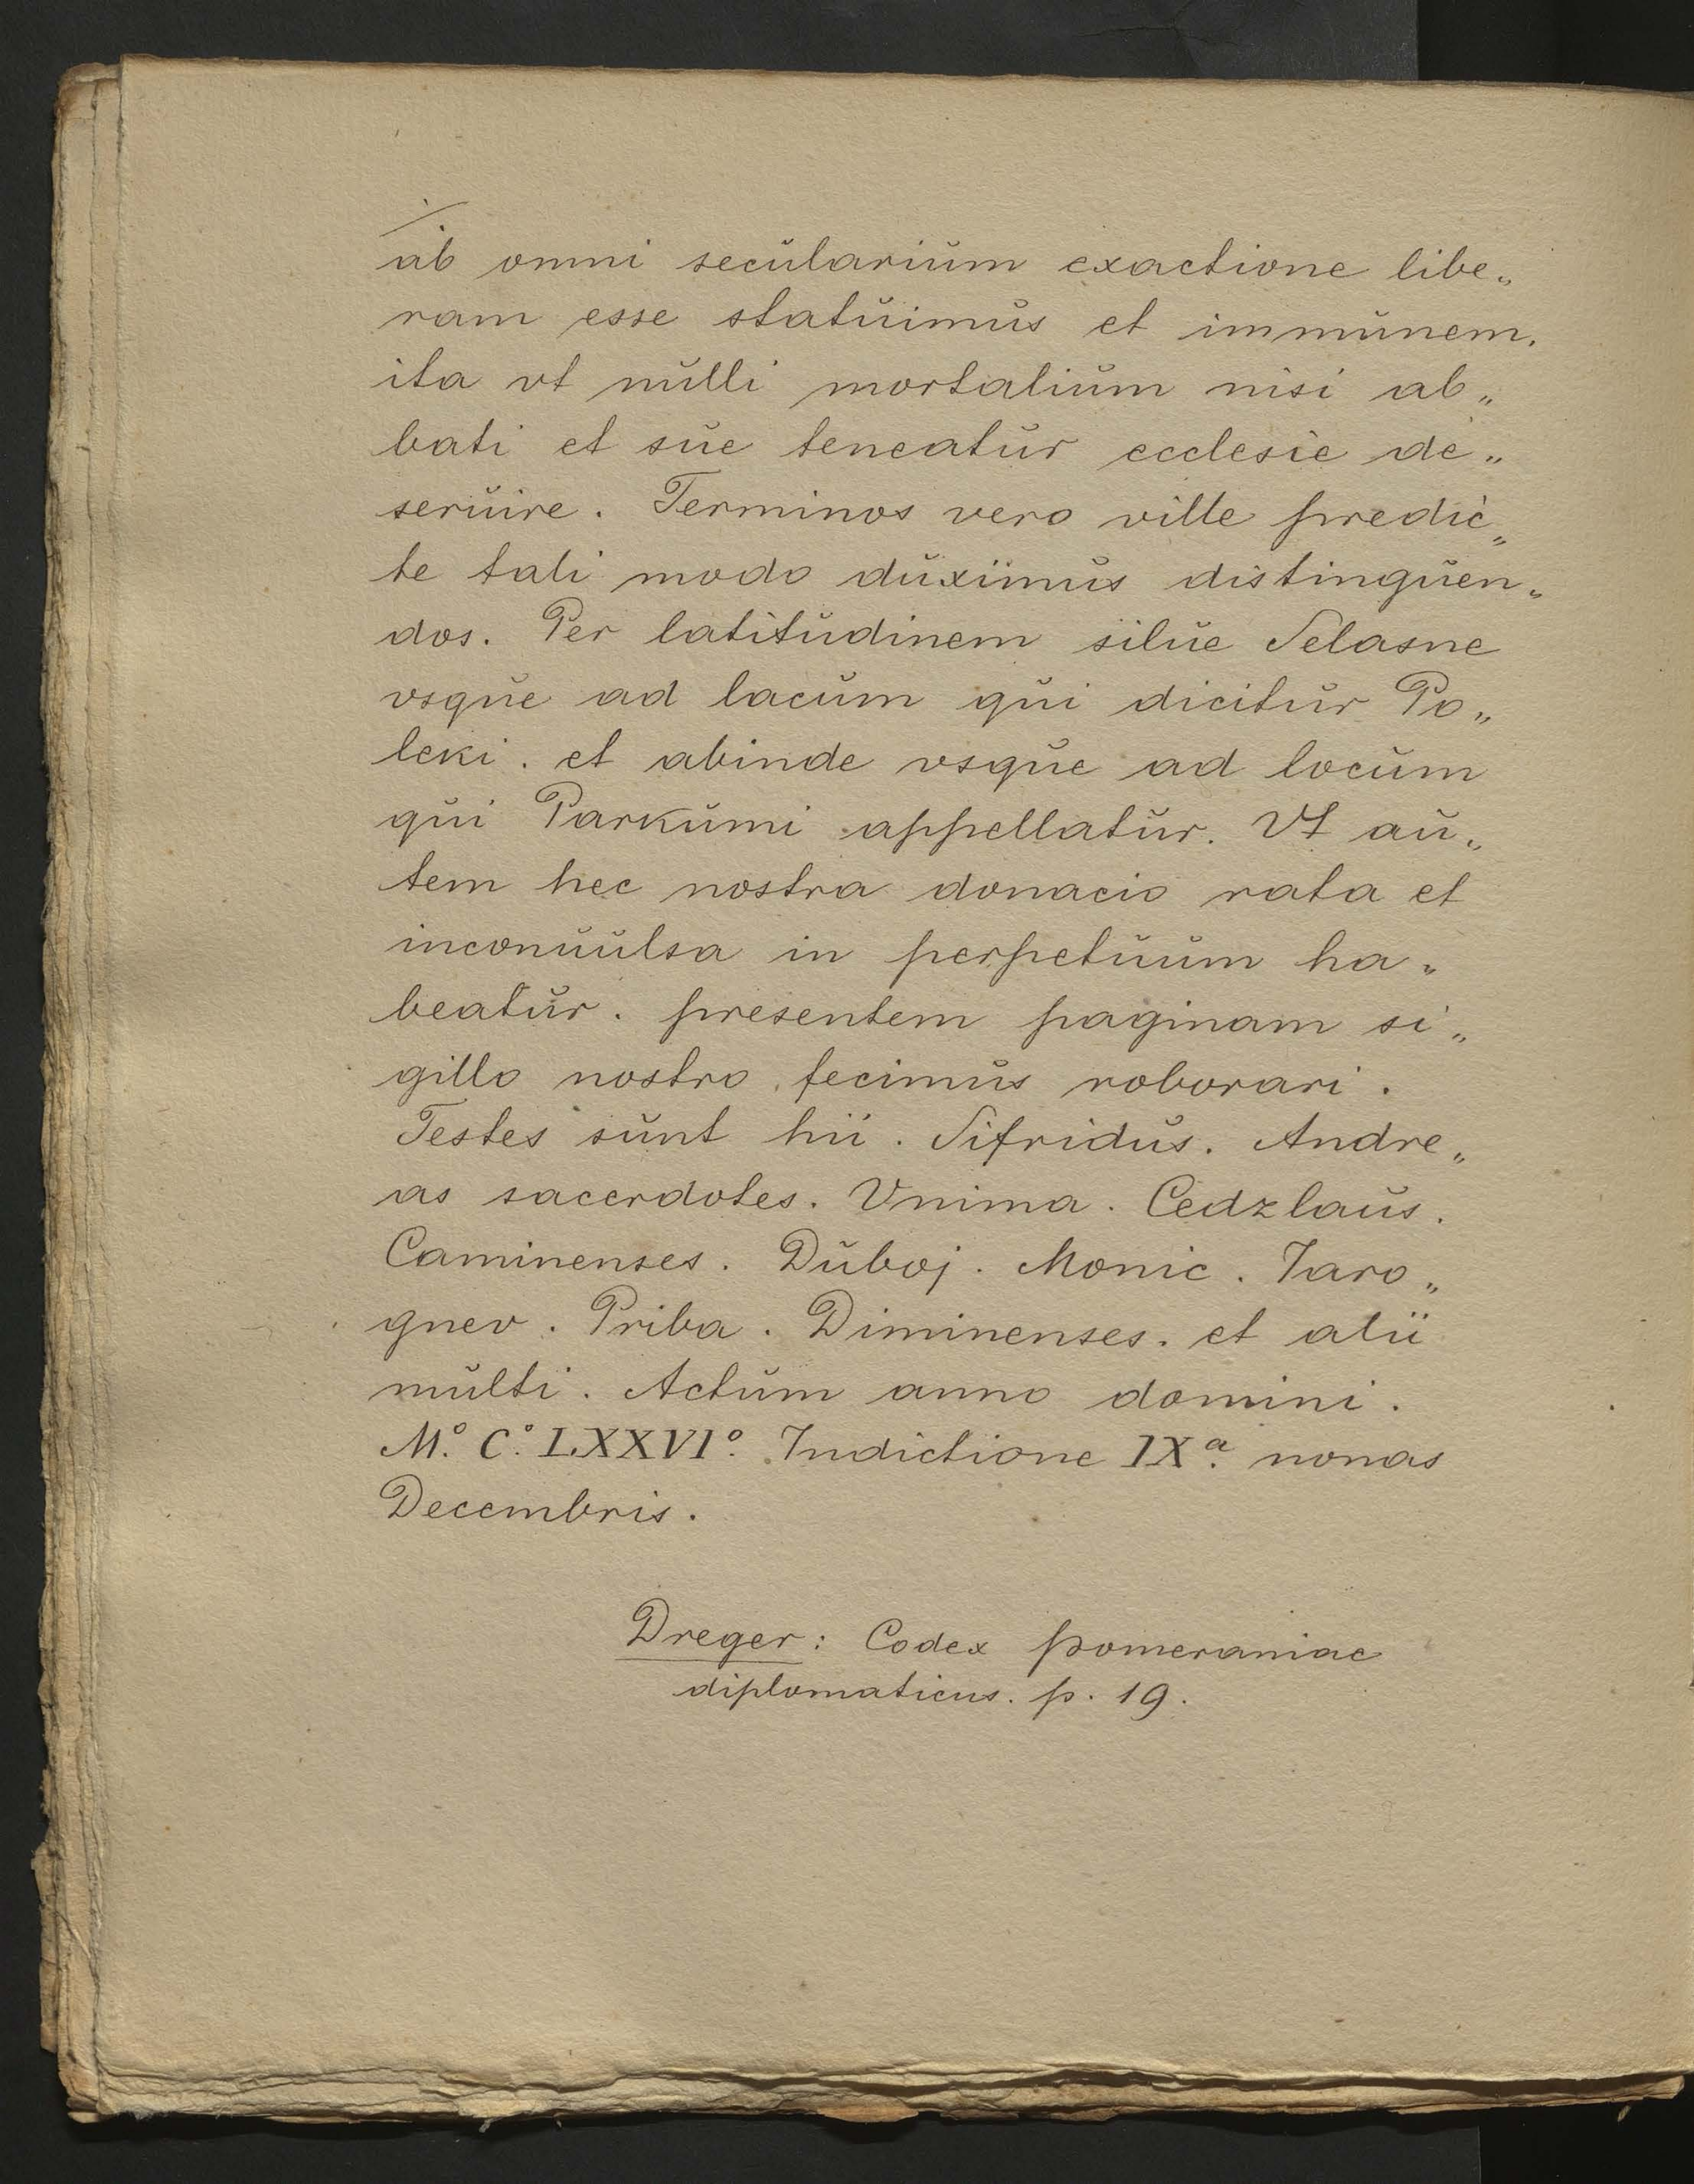 ab omni secularium exactione libe„
ram esse statuimus et immunem.
ita vt nulli mortalium nisi ab„
bati et sue teneatur ecclesie de„
seruire. Terminos vero ville predic„
te tali modo duximus distinguen„
dos. Per latitudinem silue Selasne
vsque ad lacum qui dicitur Po„
leki. et abinde vsque ad locum
qui Parkumi appellatur. Vt au„
tem hec nostra donacio rata et
inconuulsa in perpetuum ha„
beatur. presentem paginam si„
gillo nostro fecimus roborari.
Testes sunt hii. Sifridus. Andre„
as sacerdotes. Vnima. Cedzlaus.
Caminenses. Duboj. Monic. Jaro„
gnev. Priba. Diminenses. et alii
multi. Actum anno domini.
M.º C.º LXXVIº. Indictione IXª. nonas
Decembris.
Dreger: Codex Pomeraniae
diplomaticus. p. 19.